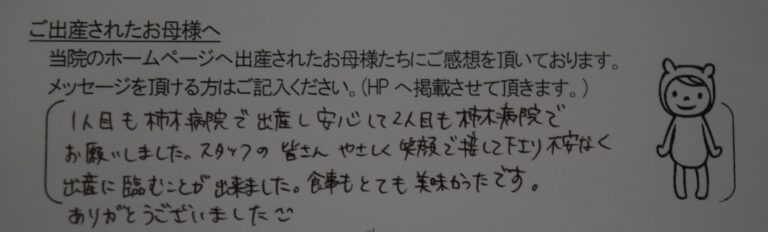 ご出産されたお母様へ
当院のホームページへ出産されたお母様たちにご感想を頂いております。
メッセージを頂ける方はご記入ください。(HPへ掲載させて頂きます。)
1人目も柿木病院で出産し安心して2人目も柿木病院で
お願いしました。スタッフの皆さんやさしく笑顔で接して下さり不安なく
出産に臨むことが出来ました。食事もとても美味かったです。
ありがとうございました